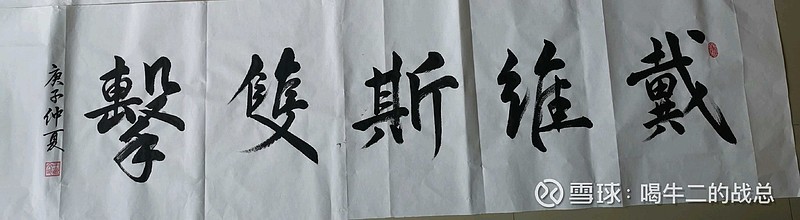 戴維斯隻擊
庚子仲夏
雪球：喝牛二的战总